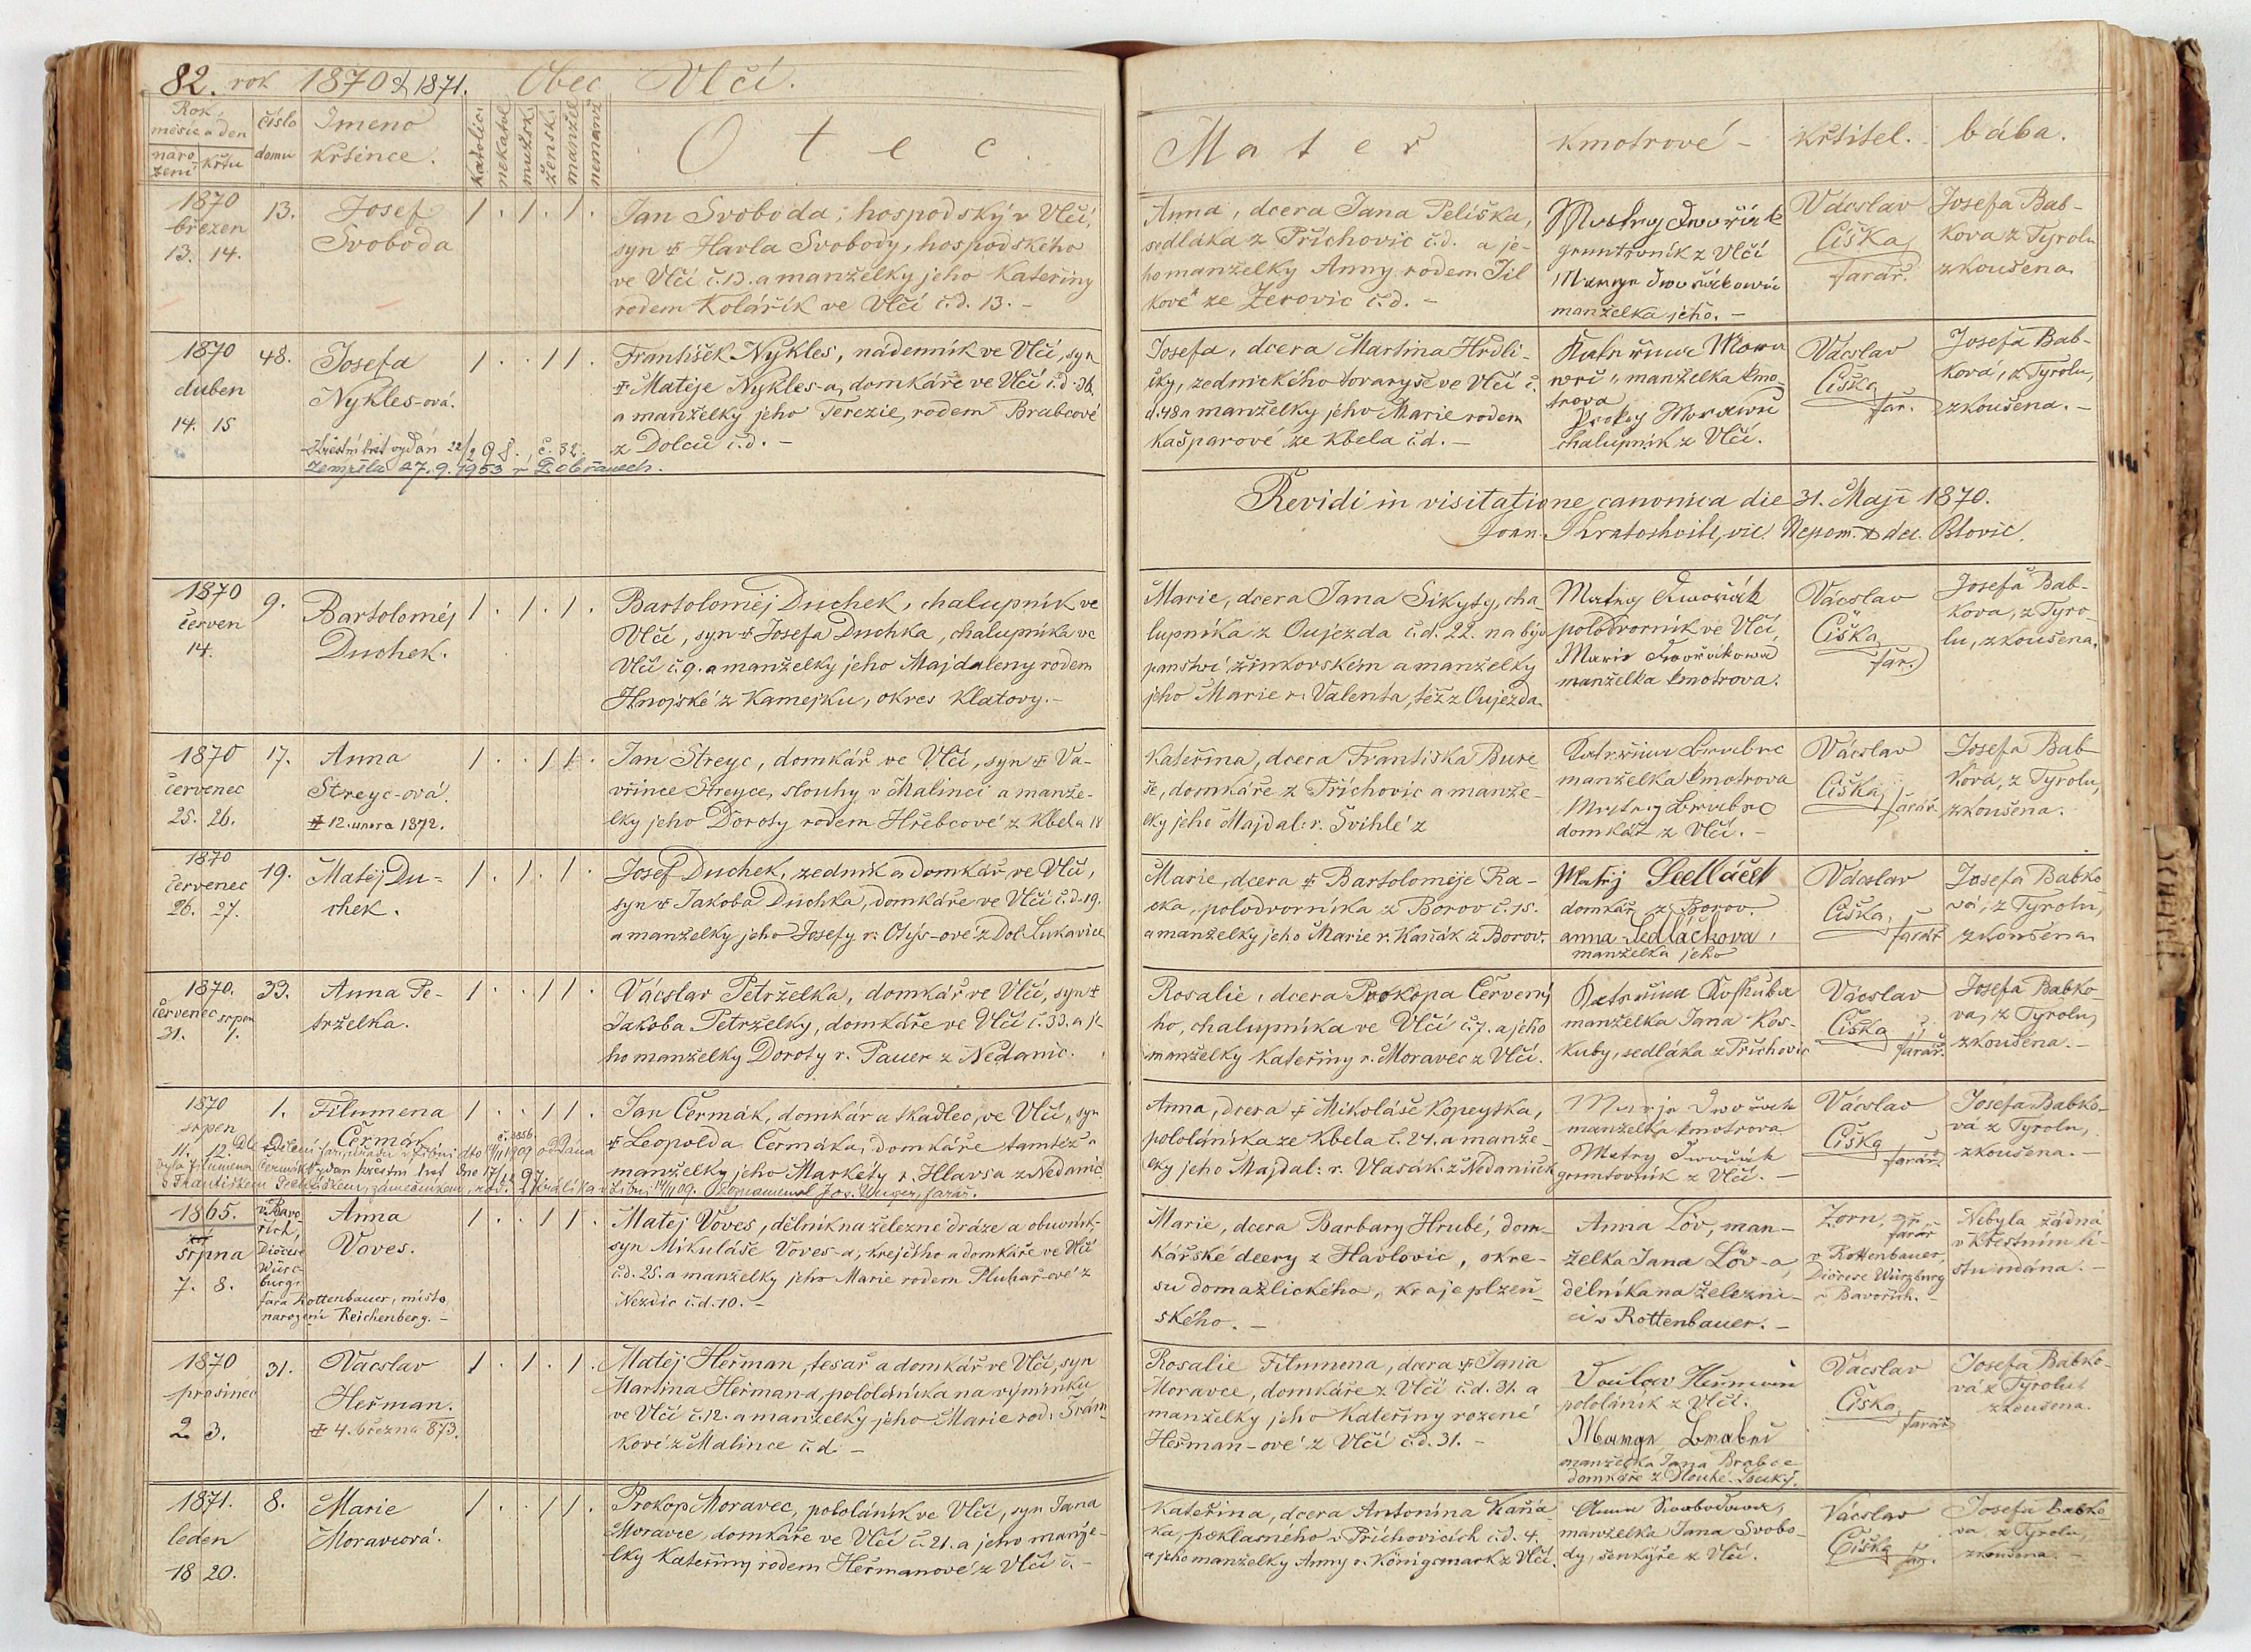 82. rok 1870 & 1871. Obec Vlčí.
Rok, měsíc a den
naro zení
křtu
číslo domu
Jmeno křtěnce.
katolic.
nekatol
mužsk.
žensk.
manžel
nemanž
Otec.
Mater
kmotrové -
křtitel.
bába.
1870
březen
13. 14.
13.
Josef
Svoboda
1 . 1 . 1 .
Jan Svoboda, hospodský v Vlčí,
syn † Havla Svobody, hospodského
ve Vlčí č.13. a manželky jeho Kateřiny
rodem Kolářík ve Vlčí č.d. 13. -
Anna, dcera Jana Peliška,
sedláka z Příchovic č.d. a je-
ho manželky Anny rodem Jíl
kové ze Zerovic č.d. -
gruntovník z Vlčí
manželka jeho. -
Václav
Čiška,
farář.
Josefa Bab-
kova z Tyrolu
zkoušena
1870
duben
14. 15
48.
Josefa
Nykles-ová.
1 . . 1 1 .
Křestní list vydán 22/2 98., č. 32.
Zemřela 27. 9. 1953 v Dobřanech.
František Nykles, nádenník ve Vlčí, syn
† Matěje Nykles-a, domkáře ve Vlčí č.d. 36.
a manželky jeho Terezie, rodem Brabcové
z Dolců č.d. -
Josefa, dcera Martina Hrdli-
čky, zednického tovaryše ve Vlčí č.
d. 48 a manželky jeho Marie rodem
Kašparové ze Kbela č.d. -
manželka kmo-
trova
chalupník z Vlčí.
Václav
Čiška
far.
Josefa Bab-
kova, z Tyrolu,
zkoušena. -
Revidi in visitatione canonica die 31. Maji 1870.
Joan. Kratochvíl, vic. Nepom. & dec. Blovic.
1870
červen
14.
9.
Bartoloměj
Duchek.
1 . 1 . 1 .
Bartoloměj Duchek, chalupník ve
Vlčí, syn † Josefa Duchka, chalupníka ve
Vlčí č.9. a manželky jeho Majdaleny rodem
Hnojské z Kamejku, okres Klatovy. -
Marie, dcera Jana Sikyty, cha-
lupníka z Oujezda č.d. 22. na býv
panství žinkovském a manželky
jeho Marie r. Valenta, též z Oujezda
polodvorník ve Vlčí,
manželka kmotrova.
Václav
Čiška
far.
Josefa Bab-
kova, z Tyro-
lu, zkoušena.
1870
červenec
25. 26.
17.
Anna
Streyc-ová.
† 12. února 1872.
1 . . 1 1 .
Jan Streyc, domkář ve Vlčí, syn † Va-
vřince Streyce, slouhy v Malinci a manže-
lky jeho Doroty rodem Hřebcové z Kbela 18
Kateřina, dcera Františka Bure-
še, domkáře z Příchovic a manže-
lky jeho Majdal. r. Švihlé z
manželka kmotrova
domkář z Vlčí. -
Václav
Čiška,
farář.
Josefa Bab
kova, z Tyrolu,
zkoušena.
1870
červenec
26. 27.
19.
Matěj Du-
chek.
1 . 1 . 1 .
Josef Duchek, zedník a domkář ve Vlčí,
syn † Jakoba Duchka, domkáře ve Vlčí č.d. 19.
a manželky jeho Josefy r. Otýs-ové z Dol. Lukavice
Marie, dcera † Bartoloměje Ra-
cka, polodvorníka z Borov č. 15.
a manželky jeho Marie r. Kaňák z Borov.
Matěj Sedláček
domkář z Borov.
anna Sedláčkova,
manželka jeho
Václav
Čiška,
farář
Josefa Babko
vá, z Tyrolu,
zkoušena
1870.
červenec srpen
31. 1.
33.
Anna Pe-
trželka.
1 . . 1 1 .
Václav Petrželka, domkář ve Vlčí, syn †
Jakoba Petrželky, domkáře ve Vlčí č. 33. a je-
ho manželky Doroty r. Pauer z Nedanic.
Rosalie, dcera Prokopa Červený
ho, chalupníka ve Vlčí č.7. a jeho
manželky Kateřiny r. Moravec z Vlčí.
manželka Jana Kos-
kuby, sedláka z Příchovic
Václav
Čiška
farář.
Josefa Babko-
va, z Tyrolu,
zkoušena. -
1870
srpen
11. 12.
1.
Filumena
Čermák
1 . . 1 1 .
Jan Čermák, domkář a tkadlec, ve Vlčí, syn
† Leopolda Čermáka, domkáře tamtéž a
manželky jeho Markéty r. Hlavsa z Nedanic
Anna, dcera † Mikoláše Kopeytka,
pololáníka ze Kbela č. 24. a manže-
lky jeho Majdal: r. Vlasák. z Nedaniček
manželka kmotrova
gruntovník z Vlčí. -
Václav
Čiška
farář.
Josefa Babko-
vá z Tyrolu,
zkoušena. -
1865.
srpna
7. 8.
v Bavo-
řích,
Diöcese
Würz-
burg,
fara Rottenbauer, místo
narození Reichenberg. -
Anna
Voves.
1 . . 1 1 .
Matěj Voves, dělník na železné dráze a obuvník,
syn Mikuláše Voves-a, krejčího a domkáře ve Vlčí
č.d. 25. a manželky jeho Marie rodem Pluhař-ové z
Nezdic č.d. 10. -
Marie, dcera Barbary Hrubé, dom-
kářské dcery z Havlovic, okre-
su domažlického, kraje plzeň-
ského. -
Anna Löv, man-
želka Jana Löv-a,
dělníka na železni-
ci v Rottenbauer. -
Zorn,
farář
v Rottenbauer,
Diöcese Würzburg
v Bavořích. -
Nebyla žádná
v křestním li-
stu udána. -
1870
prosinec
2 3.
31.
Vacslav
Heřman.
† 4. března 873.
1 . 1 . 1 .
Matěj Heřman, tesař a domkář ve Vlčí, syn
Martina Heřman-a, pololáníka na výminku
ve Vlčí č.12. a manželky jeho Marie rod. Šrám-
kové z Malince č.d. -
Rosalie Filumena, dcera † Jana
Moravce, domkáře z Vlčí č.d. 31. a
manželky jeho Kateřiny rozené
Heřman-ové z Vlčí č.d. 31. -
pololáník z Vlčí.
manželka Jana Brabce
domkáře z Dlouhé Louky.
Václav
Čiška
farář
Josefa Babko-
vá z Tyrolu
zkoušena.
1871.
leden
18 20.
8.
Marie
Moravcová.
1 . . 1 1 .
Prokop Moravec, pololáník ve Vlčí, syn Jana
Moravce, domkáře ve Vlčí č. 21. a jeho manže-
lky Kateřiny rodem Heřmanové z Vlčí č. -
Kateřina, dcera Antonína Kaňá-
ka, poklasného v Příchovicích č.d. 4.
a jeho manželky Anny r. Königsmark z Vlčí.
Anna Svobodova,
manželka Jana Svobo-
dy, šenkýře z Vlčí.
Václav
Čiška
far.
Josefa Babko
va, z Tyrolu,
zkoušena. -